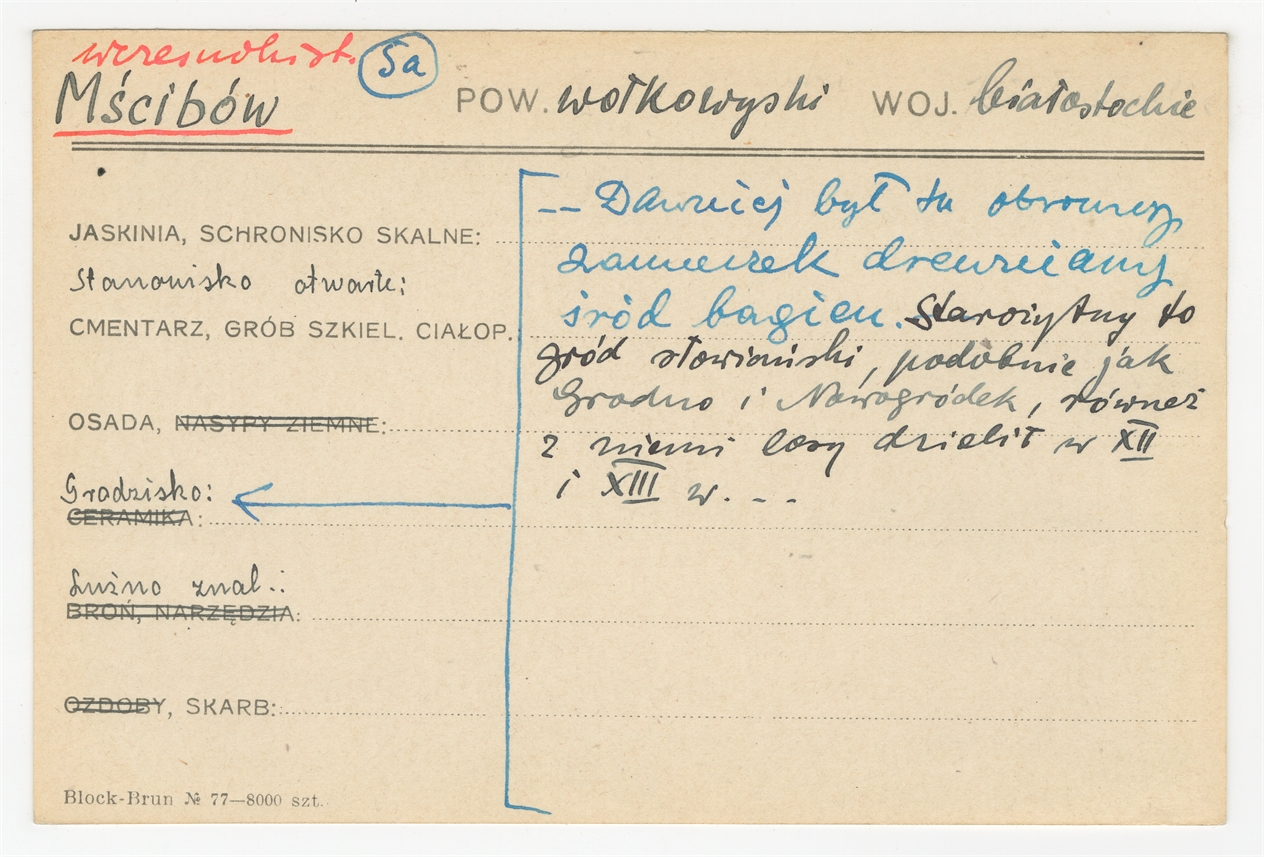 wczesnohist. 5a
Mścibów POW. wołkowyski WOJ. białostockie
-- Dawniej był tu obronny
JASKINIA, SCHRONISKO SKALNE:
zameczek drewniany
Stanowisko otwarte:
śród bagien. Starożytny to
CMENTARZ, GRÓB SZKIEL. CIAŁOP.
gród słowiański, podobnie jak
Grodno i Nowogródek, również
OSADA, NASYPY ZIEMNE:
z niemi losy dzielił w XII
i XIII w. --
Grodzisko:
CERAMIKA:
Luźno znal.:
BROŃ, NARZĘDZIA:
OZDOBY, SKARB:
Block-Brun № 77—8000 szt.